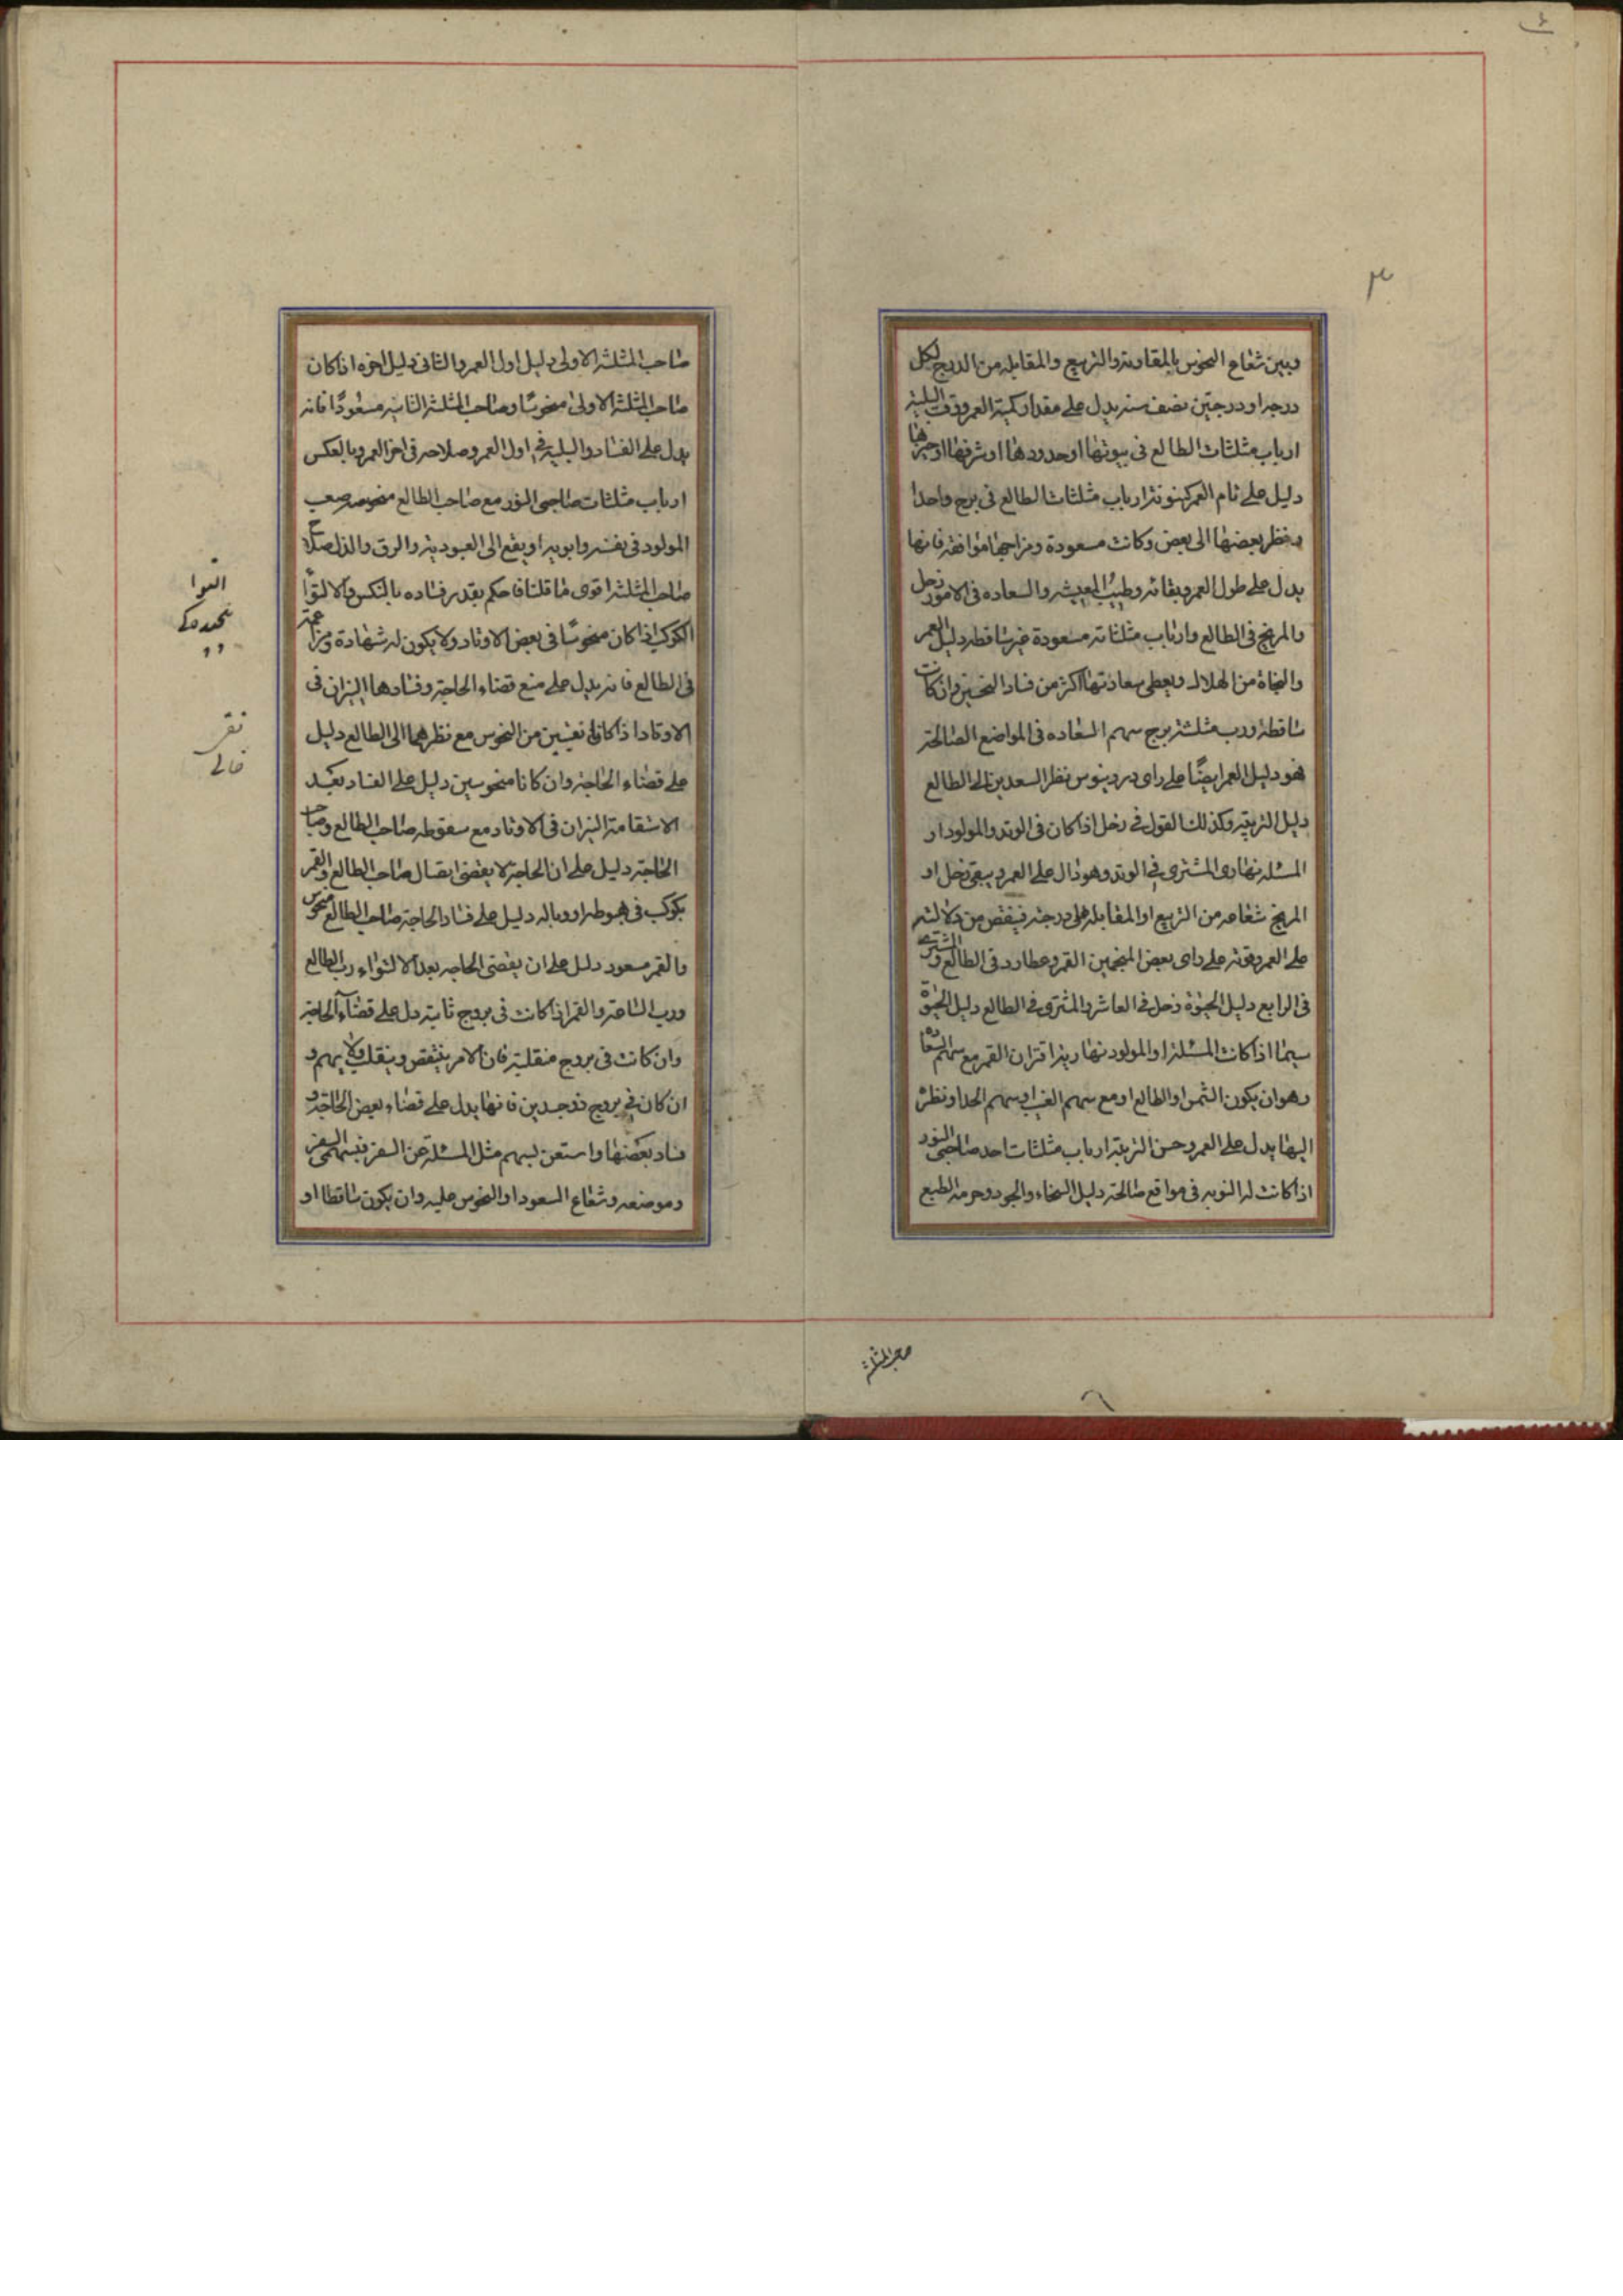 ٣
وبين شعاع النحوس بالمقارنة والتربيع والمقابلة من الدرج لكل
درجة او درجتين نصف سنة يدل على مقدار كمية العمر وقوة البلية
ارباب مثلثات الطالع في بيوتها او حدودها او شرفها او حيزها
دليل على تمام العمر كينونة ارباب مثلثات الطالع في برج واحدا
ونظر بعضها الى بعض وكانت مسعودة ومزاجها موافقة فانها
يدل على طول العمر وبقائه وطيب المعيشه والسعاده في الامور زحل
والمريخ في الطالع وارباب مثلثاته مسعودة غير ساقطه دليل العمر
والنجاة من الهلاك ويعطى سعادتها اكثر من فساد النحسين وان كانت
ساقطة ورب مثلثة برج سهم السعاده في المواضع الصالحة
فهو دليل العمر ايضًا على راى دردينوس نظر السعدين الى الطالع
دليل التربية وكذلك القول في زحل اذا كان في الوتد والمولود او
المسئلة نهارى المشترى في الوتد وهو دال على العمر ويبقى زحل او
المريخ شعاعه من التربيع او المقابلة على درجته فينقص من دلالته
على العمر وقوته على راى بعض المنجمين القمر وعطارد في الطالع والمشترى
في الرابع دليل الحيوة زحل في العاشر والمشترى في الطالع دليل الحيوة
سيما اذا كانت المسئلة او المولود نهارية اقتران القمر مع سهم السعاده
وهو ان يكون الشمس او الطالع او مع سهم الغيب او سهم الحد او نظره
اليها يدل على العمر وحسن التربية ارباب مثلثات احد صاحبى النور
اذا كانت له النوبه في مواقع صالحة دليل السخاء والجود وحرمة الطبع
صاحب المثلثة
صاحب المثلثة الاولى دليل اول العمر والثانى دليل اخره اذا كان
صاحب المثلثة الاولى منحوسًا وصاحب المثلثة الثانيه مسعودًا فانه
يدل على الفساد والبلية في اول العمر وصلاحه في اخر العمر وبالعكس
ارباب مثلثات صاحبى النور مع صاحب الطالع منحوسه صعب
المولود في نفسه وابويه او يقع الى العبودية والرق والذل صلاح
صاحب المثلثة اقوى ما قلنا فاحكم بقدر فساده بالنكس والالتوا
الكوكب اذا كان منحوسًا في بعض الاوتاد ولا يكون له شهادة ومزاعمة
في الطالع فانه يدل على منع قضاء الحاجة وفسادها النيران في
الاوتاد اذا كانا نقيين من النحوس مع نظرهما الى الطالع دليل
على قضاء الحاجة وان كانا منحوسين دليل على الفساد بعد
الاستقامة النيران في الاوتاد مع سقوطه صاحب الطالع وصاحب
الحاجة دليل على ان الحاجة لا يقضى اتصال صاحب الطالع والقمر
بكوكب في هبوطه او وباله دليل على فساد الحاجة صاحب الطالع منحوس
والقمر مسعود دليل على ان يقضى الحاجه بعد الالتواء رب الطالع
ورب الساعة والقمر اذا كانت في بروج ثابتة دل على قضاء الحاجة
وان كانت في بروج منقلبة فان الامر ينتقض وينقلب ولا يهم و
ان كان في بروج ذوجسدين فانها يدل على قضاء بعض الحاجة و
فساد بعضها واستعن بسهم مثل المسئلة عن السفر فبسهمى السفر
وموضعه وشعاع السعود او النحوس عليه وان يكون ساقطا او
التوا